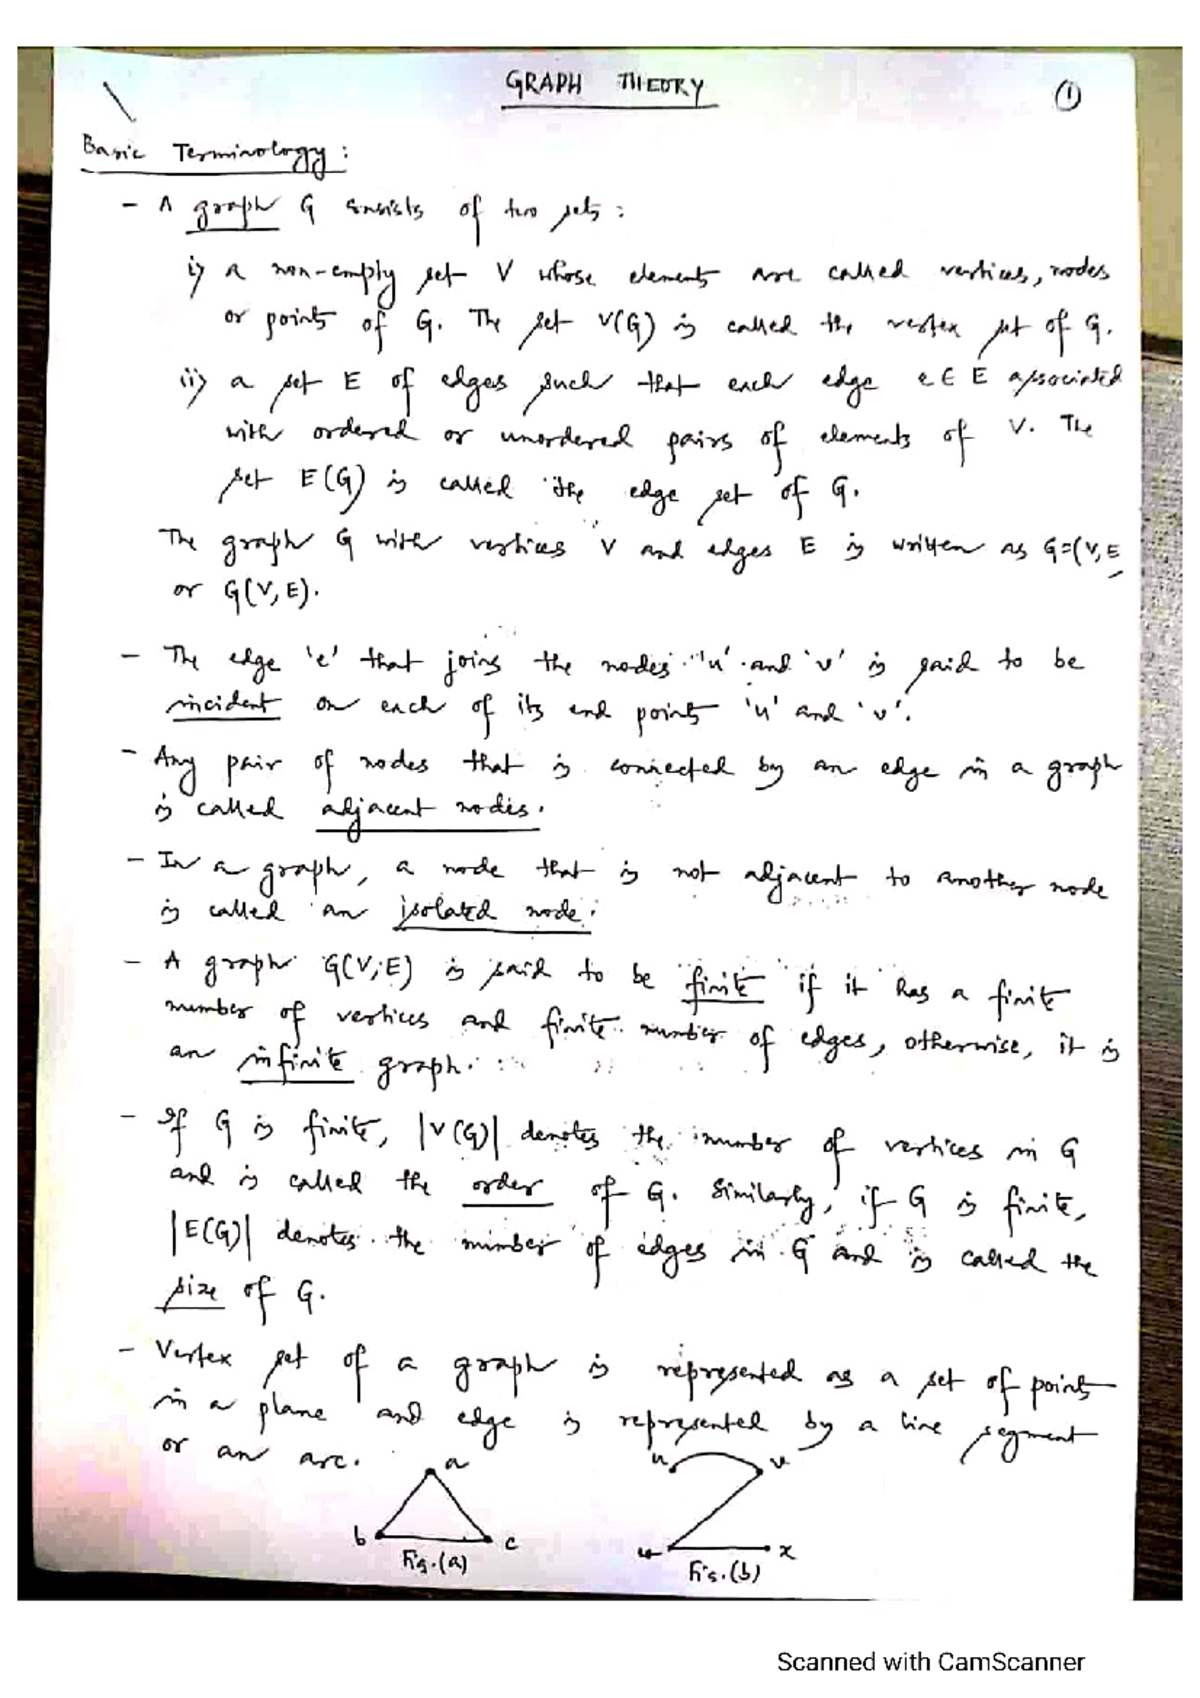 GRAPH THEORY
1
Basic Terminology:
- A graph G consists of two sets:
i) a non-empty set V whose elements are called vertices, nodes
or points of G. The set V(G) is called the vertex set of G.
ii) a set E of edges such that each edge e ∈ E associated
with ordered or unordered pairs of elements of V. The
set E(G) is called the edge set of G.
The graph G with vertices V and edges E is written as G=(V,E
or G(V,E).
- The edge 'e' that joins the nodes 'u' and 'v' is said to be
incident on each of its end points 'u' and 'v'.
- Any pair of nodes that is connected by an edge in a graph
is called adjacent nodes.
- In a graph, a node that is not adjacent to another node
is called an isolated node.
- A graph G(V,E) is said to be finite if it has a finite
number of vertices and finite number of edges, otherwise, it is
an infinite graph.
- If G is finite, |V(G)| denotes the number of vertices in G
and is called the order of G. Similarly, if G is finite,
|E(G)| denotes the number of edges in G and is called the
size of G.
- Vertex set of a graph is represented as a set of points
in a plane and edge is represented by a line segment
or an arc.
a
u v
b c
x
Fig.(a)
Fig.(b)
Scanned with CamScanner